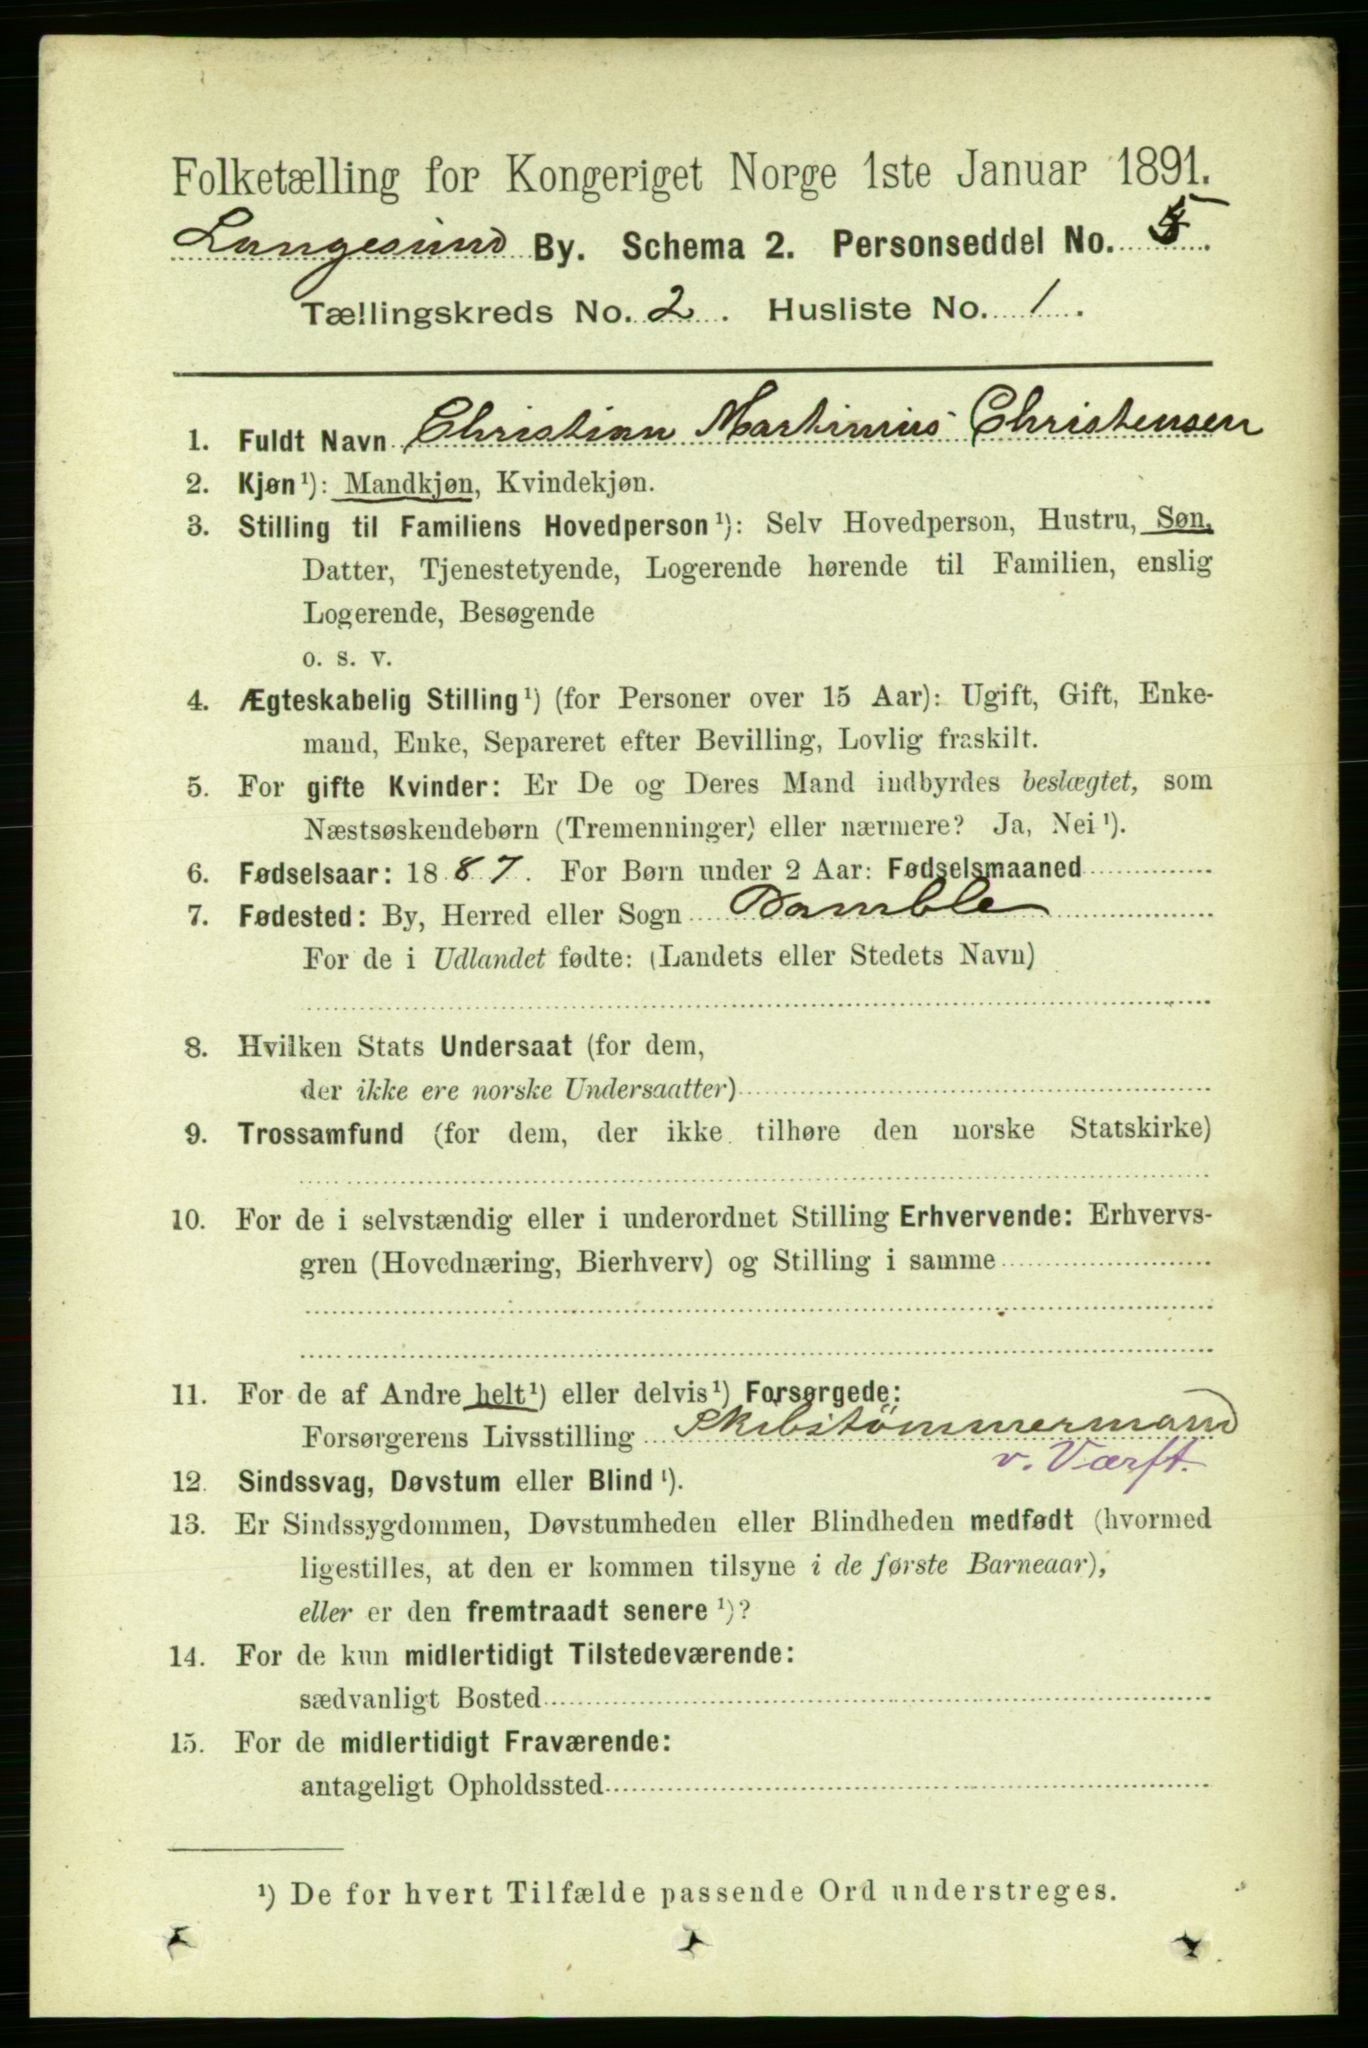 Folketælling for Kongeriget Norge 1ste Januar 1891.
Langesund By. Schema 2. Personseddel No. 5.
Tællingskreds No. 2. Husliste No. 1.
1. Fuldt Navn Christian Martinius Christensen
2. Kjøn¹): Mandkjøn, Kvindekjøn.
3. Stilling til Familiens Hovedperson¹): Selv Hovedperson, Hustru, Søn,
Datter, Tjenestetyende, Logerende hørende til Familien, enslig
Logerende, Besøgende
o. s. v.
4. Ægteskabelig Stilling¹) (for Personer over 15 Aar): Ugift, Gift, Enke-
mand, Enke, Separeret efter Bevilling, Lovlig fraskilt.
5. For gifte Kvinder: Er De og Deres Mand indbyrdes beslægtet, som
Næstsøskendebørn (Tremenninger) eller nærmere? Ja, Nei¹).
6. Fødselsaar: 1887. For Børn under 2 Aar: Fødselsmaaned
7. Fødested: By, Herred eller Sogn Bamble
For de i Udlandet fødte: (Landets eller Stedets Navn)
8. Hvilken Stats Undersaat (for dem,
der ikke ere norske Undersaatter)
9. Trossamfund (for dem, der ikke tilhøre den norske Statskirke)
10. For de i selvstændig eller i underordnet Stilling Erhvervende: Erhvervs-
gren (Hovednæring, Bierhverv) og Stilling i samme
11. For de af Andre helt¹) eller delvis¹) Forsørgede:
Forsørgerens Livsstilling Skibstömmermand
v. Værft.
12. Sindssvag, Døvstum eller Blind¹).
13. Er Sindssygdommen, Døvstumheden eller Blindheden medfødt (hvormed
ligestilles, at den er kommen tilsyne i de første Barneaar),
eller er den fremtraadt senere¹)?
14. For de kun midlertidigt Tilstedeværende:
sædvanligt Bosted
15. For de midlertidigt Fraværende:
antageligt Opholdssted
¹) De for hvert Tilfælde passende Ord understreges.